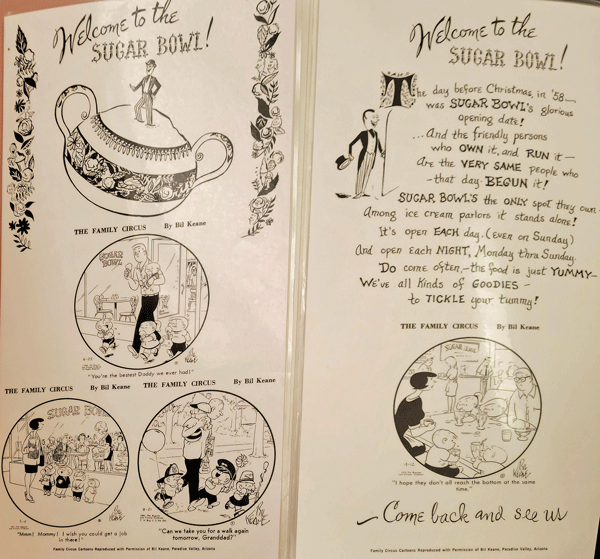 Welcome to the
SUGAR BOWL!
THE FAMILY CIRCUS By Bil Keane
SUGAR
BOWL
4-29
"You're the bestest Daddy we ever had!"
THE FAMILY CIRCUS By Bil Keane
SUGAR BOWL
"Mmm! Mommy! I wish you could get a job
in there!"
THE FAMILY CIRCUS By Bil Keane
"Can we take you for a walk again
tomorrow, Granddad?"
Family Circus Cartoons Reproduced with Permission of Bil Keane, Paradise Valley, Arizona
Welcome to the
SUGAR BOWL!
The day before Christmas, in '58—
was SUGAR BOWL's glorious
opening date!
...And the friendly persons
who OWN it, and RUN it—
Are the VERY SAME people who
—that day—BEGUN it!
SUGAR BOWL'S the ONLY spot they own—
Among ice cream parlors it stands alone!
It's open EACH day. (EVEN on Sunday)
And open each NIGHT, Monday thru Sunday.
Do come often,—the food is just YUMMY—
We've all kinds of GOODIES—
to TICKLE your tummy!
THE FAMILY CIRCUS By Bil Keane
SUGAR BOWL
"I hope they don't all reach the bottom at the same
time."
—Come back and see us
Family Circus Cartoons Reproduced with Permission of Bil Keane, Paradise Valley, Arizona